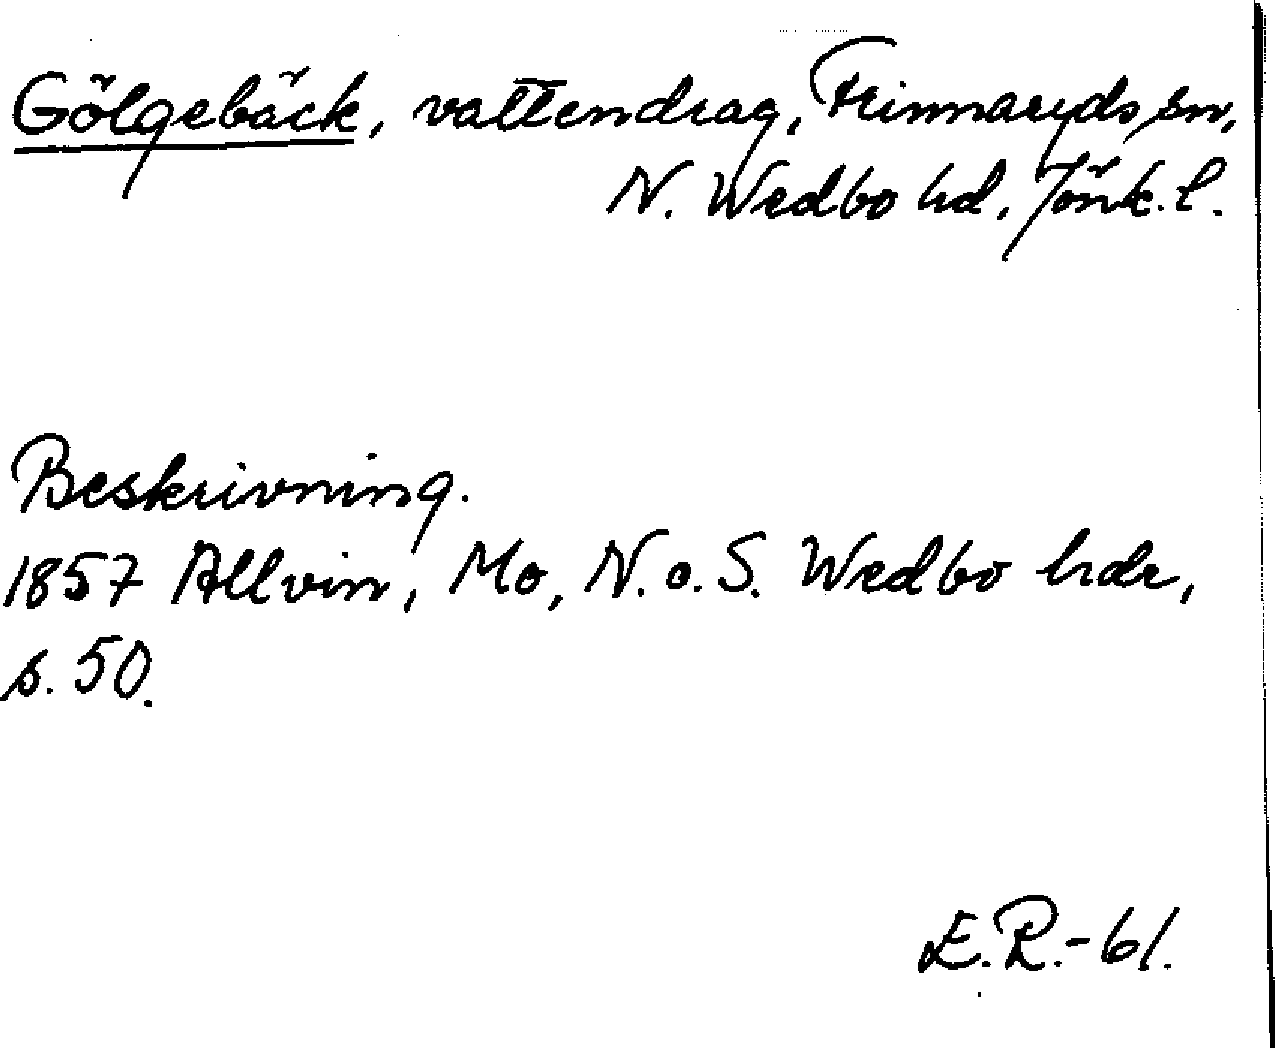 Gölgebäck, vattendrag, Frinnaryds sn,
N. Wedbo hd, Jönk. l.
Beskrivning.
1857 Allvin, Mo, N. o. S. Wedbo hdr,
s. 50.
E.R.-61.